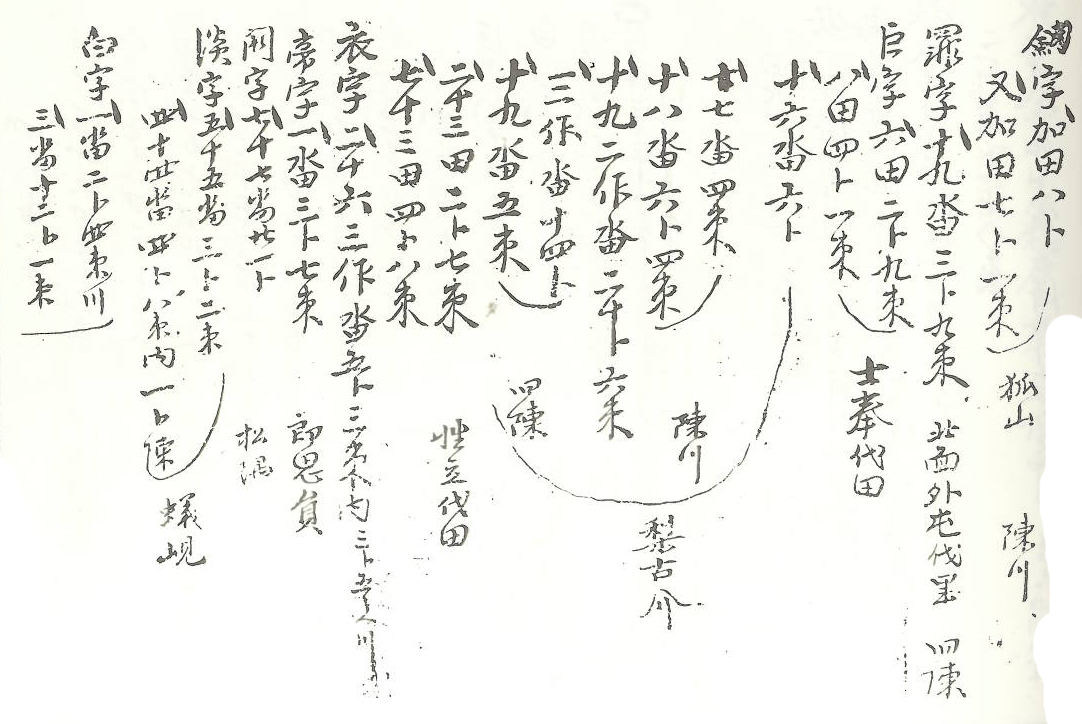 字加田八卜
又加田七卜一束 狐山 陳川
羅字十九畓三卜九束 北面外屯伐里 四陳
巨字六田二卜九束
八田四卜一束 士奉代田
十六畓六卜
廿七畓四束
十八畓六卜四束 陳川
十九二作畓二十卜六束 梨古介
三作畓十四卜
十九畓五束 四陳
二十三田二卜七束
七十三田四卜八束 代田
衣字二十六三作畓五卜三束內三卜五川
帝字一畓三卜七束 郎思負
閑字七十七畓廿一卜 松隅
淡字五十五畓三卜二束
四十四畓四卜八束內一卜陳 蟻峴
白字一畓二卜四束川
三畓十三卜一束